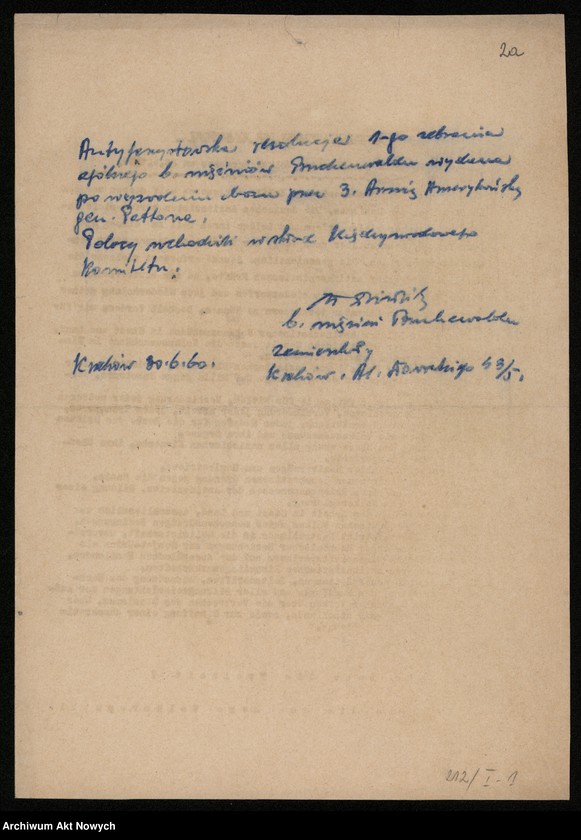 2a
Antyfaszystowska rezolucja 1-go zebrania
ogólnego b. więźniów Buchenwaldu wydana
po wyzwoleniu obozu przez 3. Armię Amerykańską
gen. Pattona.
Polacy wchodzili w skład Międzynarodowego
Komitetu.
b. więzień Buchenwaldu
zamieszkały
Kraków 30.6.60.
Kraków. Al. Słowackiego 53/5.
212/I-1
Archiwum Akt Nowych